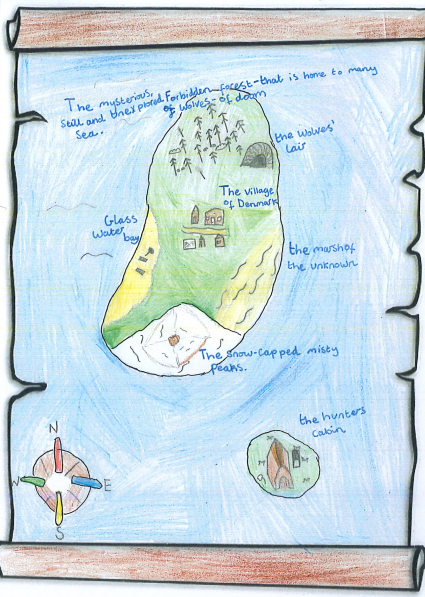 The mysterious, Forbidden forest-that is home to many
still and unexplored of wolves-of doom
sea.
the wolves'
lair
The village
of Denmark
Glass
Water
bay
the marsh of
the unknown
The snow-capped misty
Peaks.
the hunters
cabin
N
W
E
S